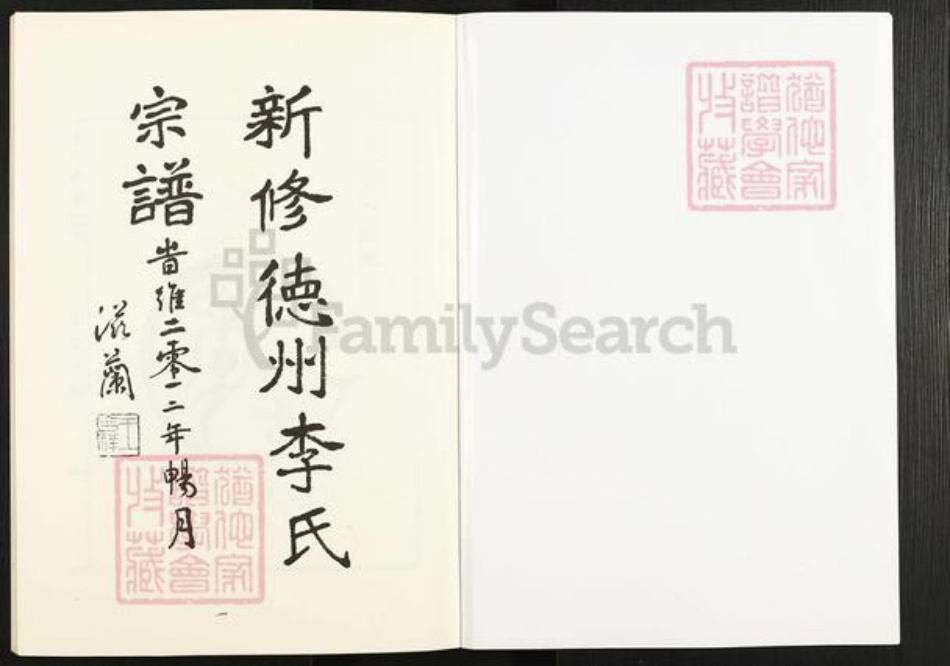 猶他家
譜學會
收藏
新修德州李氏
宗譜
旹維二零一二年暢月
滋蘭
猶他家
譜學會
收藏
FamilySearch